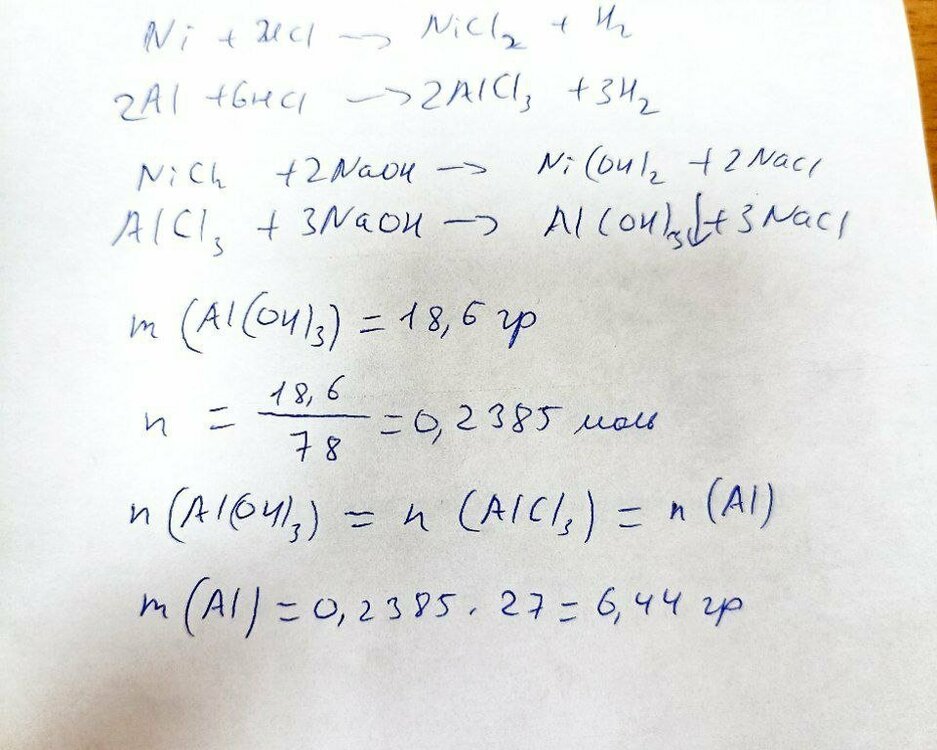 Ni + 2HCl → NiCl₂ + H₂
2Al + 6HCl → 2AlCl₃ + 3H₂
NiCl₂ + 2NaOH → Ni(OH)₂ + 2NaCl
AlCl₃ + 3NaOH → Al(OH)₃↓ + 3NaCl
m (Al(OH)₃) = 18,6 гр
n = 18,6 / 78 = 0,2385 моль
n (Al(OH)₃) = n (AlCl₃) = n (Al)
m (Al) = 0,2385 · 27 = 6,44 гр